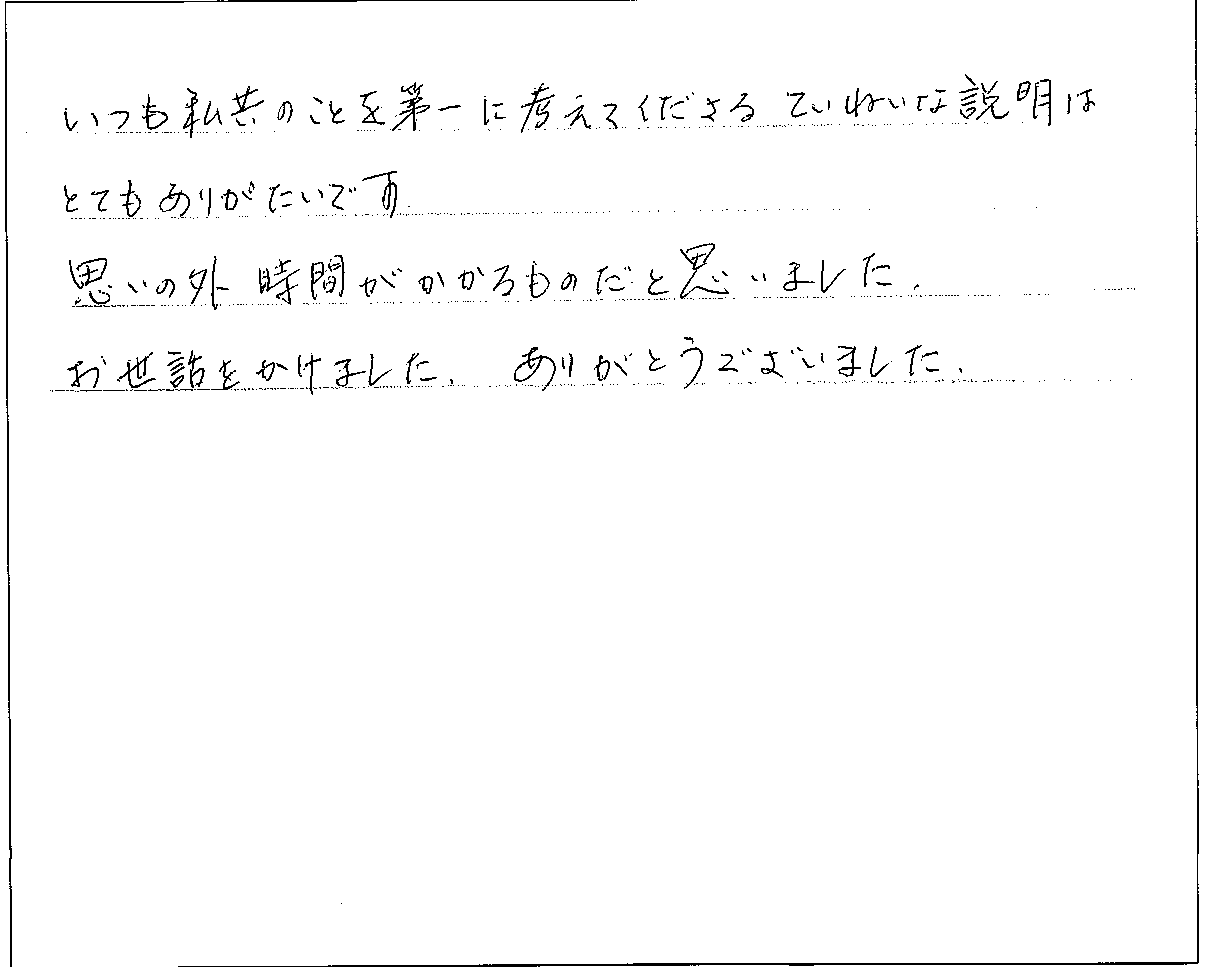 いつも私共のことを第一に考えてくださる ていねいな説明は
とてもありがたいです
思いの外 時間がかかるものだと思いました.
お世話をかけました. ありがとうございました.